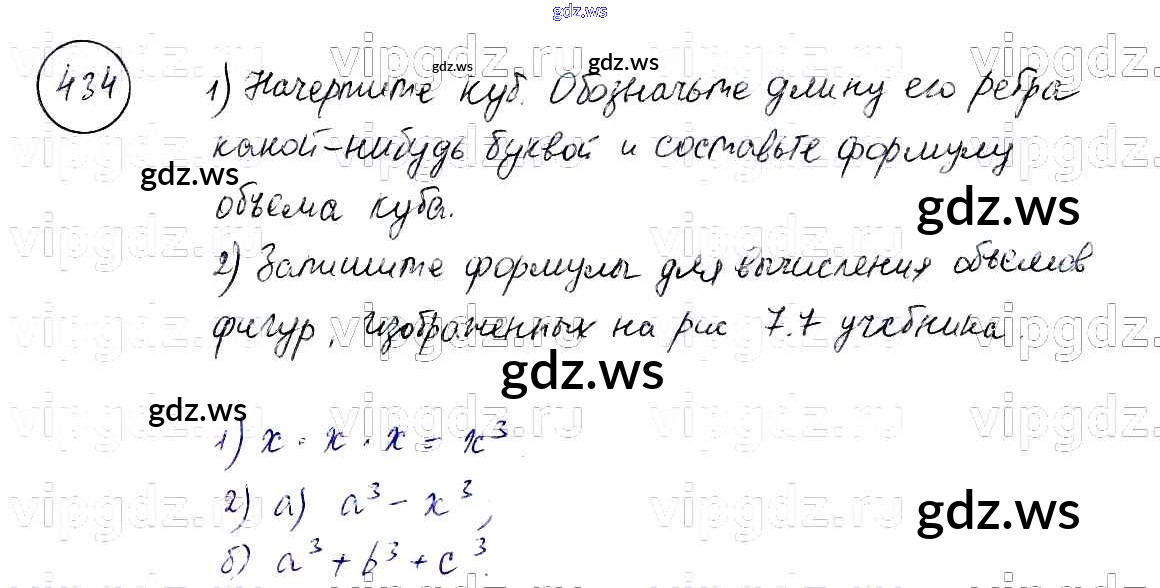 gdz.ws
434
1) Начертите куб. Обозначьте длину его ребра
какой-нибудь буквой и составьте формулу
объема куба.
2) Запишите формулы для вычисления объемов
фигур, изображенных на рис 7.7 учебника.
1) x · x · x = x³.
2) а) a³ - x³;
б) a³ + b³ + c³.
gdz.ws
gdz.ws
gdz.ws
gdz.ws
gdz.ws
gdz.ws
gdz.ws
vipgdz.ru